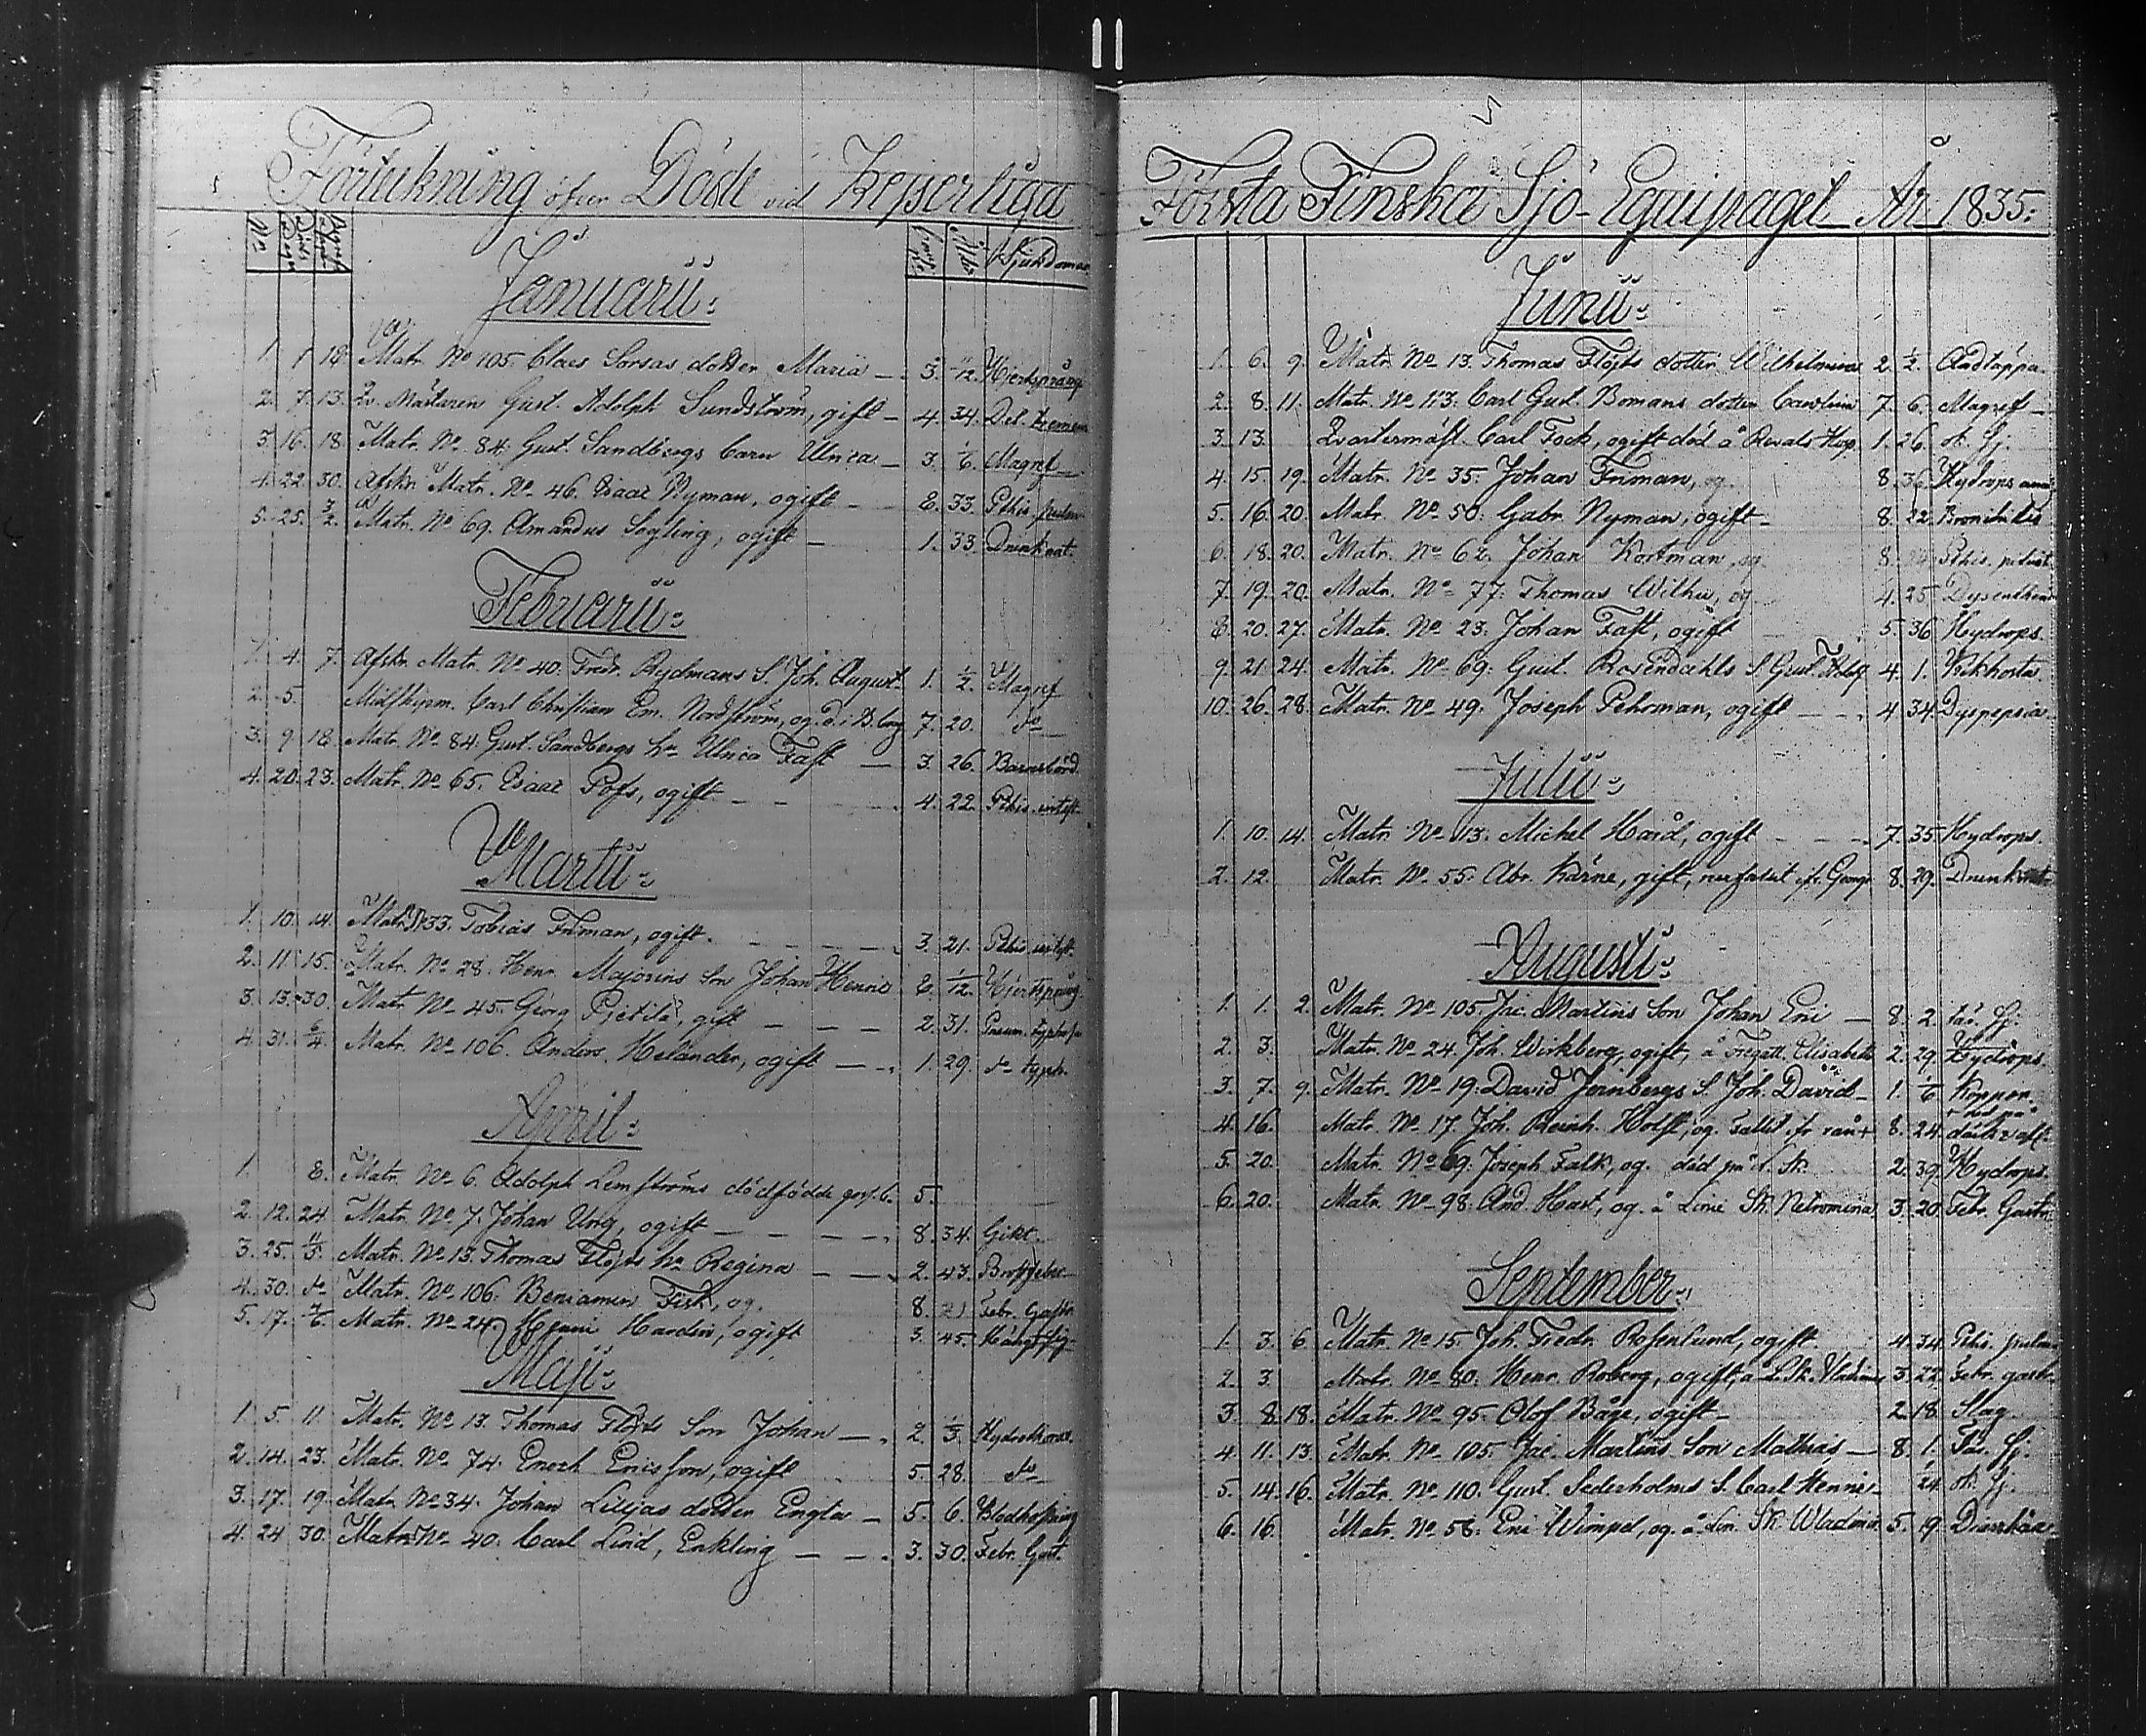 Förteckning öfver Döde vid Kejserliga
No Döds Dagar Begrafn. Compl. No Ålder Sjukdomar
Januarii:
1. 1 18. Matr. No 105. Claes Sorsas dotter Maria — 3. 1/12. Hjertsprång
2. 7. 13. Qv. Mästaren Gust. Adolph Sundström, gift — 4. 34. Del. tremens
3. 16. 18. Matr. No 84. Gust. Sandbergs barn Ulrica — 3. 1/6. Magref
4. 22. 30. Afskn. Matr. No 46. Isaac Nyman, ogift — 8. 33. Pthis. pulm.
5. 25. 3/2. Matr. No 69. Amandus Sogling, ogift — 1. 33. Drunknat.
Februarii:
1. 4. 7. Afskn. Matr. No 40. Fredr. Rydmans S. Joh. August 1. 1/2. Magref
2. 5. Carl Christian Em. Nordström, og. 7. 20. do
3. 9. 18. Matr. No 84. Gust. Sandbergs hu Ulrica Fast — 3. 26. Barnsbörd.
4. 20. 23. Matr. No 65. Isaac Pofs, ogift — 4. 22. Pthis. intest.
Martii:
1. 10. 14. Matr. No 33. Tobias Friman, ogift. — 3. 21. Pthis. intest.
2. 11. 15. Matr. No 28. Henr. Majorins Son Johan Henric 6. 1/12. Hjertsprång
3. 13. 30. Matr. No 45. Georg Pjetilä, gift — 2. 31. Pneum. typhosa
4. 31. 6/4. Matr. No 106. Anders Helander, ogift — 1. 29. do typh.
April:
1. 8. Matr. No 6. Adolph Lemströms dödfödde 5.
2. 12. 24. Matr. No 7. Johan Ung, ogift — 8. 34. Gikt.
3. 25. 11/5. Matr. No 13. Thomas Flöjts hu Regina — 2. 43. Bröstfeber
4. 30. do Matr. No 106. Beniamin Fisk, og. 8. 21. Febr. Gastr.
5. 17. 7/6. Matr. No 24. Henric Hardin, ogift 3. 45. Hängt sig
Maji:
1. 5. 11. Matr. No 13. Thomas Flöjts Son Johan — 2. 1/3. Hydrothorax.
2. 14. 23. Matr. No 74. Enoch Ericsson, ogift 5. 28. do
3. 17. 19. Matr. No 34. Johan Liljas dotter Engla — 5. 6. Blodhostning
4. 24. 30. Matr. No 40. Carl Lind, Enkling — 3. 30. Febr. Gast.
Första Finska Sjö-Equipaget År 1835:
Junii:
1. 6. 9. Matr. No 13. Thomas Flöjts dotter Wilhelmina 2. 1/2. Andtäppa.
2. 8. 11. Matr. No 113. Carl Gust. Bomans dotter Carolina 7. 6. Magref —
3. 13. Qvartermäst. Carl Fock, ogift död å Revals Hosp. 1. 26. ok. Sj.
4. 15. 19. Matr. No 35. Johan Friman, og. 8. 36. Hydrops anas.
5. 16. 20. Matr. No 50. Gabr. Nyman, ogift — 8. 22. Bronchitis
6. 18. 20. Matr. No 62. Johan Kortman, og. 8. Pthis. pituit.
7. 19. 20. Matr. No 77. Thomas Wilhu, og. 4. 25. Dysentheria
8. 20. 27. Matr. No 23. Johan Fast, ogift 5. 36. Hydrops.
9. 21. 24. Matr. No 69. Gust. Rosendahls S. Gust. Adolf 4. 1. Kikhosta.
10. 26. 28. Matr. No 49. Joseph Pehrman, ogift — 4. 34. Dyspepsia.
Julii:
1. 10. 14. Matr. No 113. Michel Hård, ogift — 7. 35. Hydrops.
2. 12. Matr. No 55. Abr. Kärne, gift, 8. 29. Drunknat
Augusti:
1. 1. 2. Matr. No 105. Jac. Martins Son Johan Eric — 8. 2. Sj.
2. 3. Matr. No 24. Joh. Wirkberg, ogift, å Fregatt. Elisabeth 2. 29. Hydrops.
3. 7. 9. Matr. No 19. David Jernbergs S. Joh. David — 1. 1/6. Koppor.
4. 16. Matr. No 17. Joh. Reinh. Holst, og. Fallit fr. rån + 8. 24. + ned på däck
5. 20. Matr. No 69. Joseph Falk, og. död på d. Sk. 2. 39. Hydrops.
6. 20. Matr. No 98. And. Hast, og. å Linie Sk. 3. 20. Febr. Gastr.
September:
1. 3. 6. Matr. No 15. Joh. Fredr. Rosenlund, ogift. 4. 34. Pthis. pulm.
2. 3. Matr. No 80. Henr. Roberg, ogift, å L. Sk. Vladimir 3. 22. Febr. gastr.
3. 8. 18. Matr. No 95. Olof Båge, ogift — 2. 18. Slag.
4. 11. 13. Matr. No 105. Jac. Martins Son Mathias — 8. 1. Sj.
5. 14. 16. Matr. No 110. Gust. Sederholms S. Carl Henric 24. ok. Sj.
6. 16. Matr. No 58. Eric Wimpel, og. å Lin. Sk. Wladimir 5. 19. Diarrhäa